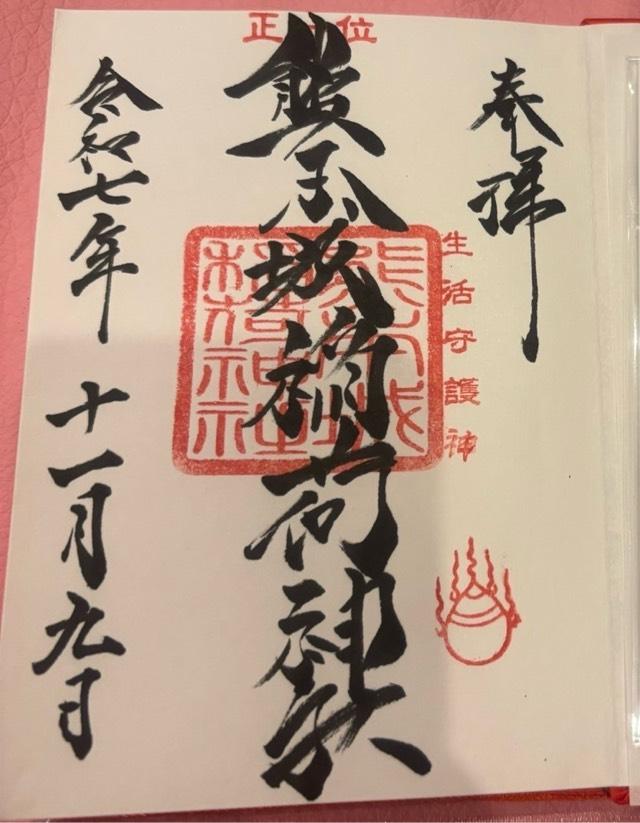 奉拝
生活守護神
正一位
熊本城稲荷神社
令和七年 十一月九日